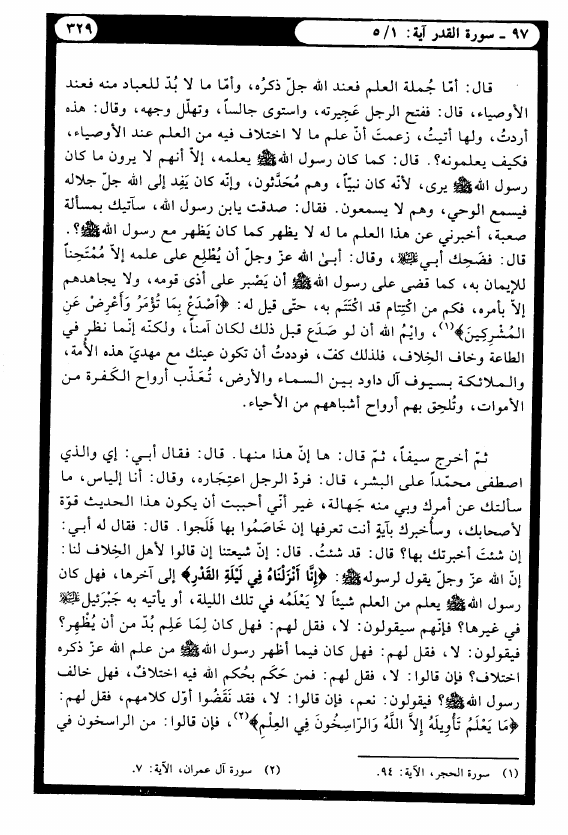 ٩٧ ـ سورة القدر آية: ٥/١
٣٢٩
قال: أمّا جُملة العلم فعند الله جلّ ذكرُه، وأمّا ما لا بُدّ للعباد منه فعند
الأوصياء، قال: ففتح الرجل عَجيرته، واستوى جالساً، وتهلّل وجهه، وقال: هذه
أردتُ، ولها أتيتُ، زعمتَ أنّ علم ما لا اختلاف فيه من العلم عند الأوصياء،
فكيف يعلمونه؟. قال: كما كان رسول الله ﷺ يعلمه، إلاّ أنهم لا يرون ما كان
رسول الله ﷺ يرى، لأنّه كان نبيّاً، وهم مُحَدَّثون، وإنّه كان يَفِد إلى الله جلّ جلاله
فيسمع الوحي، وهم لا يسمعون. فقال: صدقت يابن رسول الله، سآتيك بمسألة
صعبة، أخبرني عن هذا العلم ما له لا يظهر كما كان يَظهر مع رسول الله ﷺ؟.
قال: فضَحِك أبي عليه السلام، وقال: أبىٰ الله عزّ وجلّ أن يُطْلِع على علمه إلاّ مُمْتَحِناً
للإيمان به، كما قضى على رسول الله ﷺ أن يَصْبر على أذى قومه، ولا يجاهدهم
إلاّ بأمره، فكم من اكْتِتام قد اكْتَتم به، حتّى قيل له: ﴿ٱصْدَعْ بِمَا تُؤْمَرُ وَأَعْرِضْ عَنِ
المُشْرِكِينَ﴾(١)، وايْمُ الله أن لو صَدَع قبل ذلك لكان آمناً، ولكنّه إنّما نظر في
الطاعة وخاف الخِلاف، فلذلك كفّ، فوددتُ أن تكون عينك مع مهديّ هذه الأُمة،
والملائكة بسيوف آل داود بين السماء والأرض، تُعَذّب أرواح الكَفرة من
الأموات، وتُلحِق بهم أرواح أشباههم من الأحياء.
ثمّ أخرج سيفاً، ثمّ قال: ها إنّ هذا منها. قال: فقال أبي: إي والذي
اصطفى محمّداً على البشر، قال: فردّ الرجل اعتِجاره، وقال: أنا إلياس، ما
سألتك عن أمرك وبي منه جَهالة، غير أنّي أحببت أن يكون هذا الحديث قوّة
لأصحابك، وسأُخبرك بآيةٍ أنت تعرفها إن خَاصَمُوا بها فَلَجوا. قال: فقال له أبي:
إن شئتَ أخبرتك بها؟ قال: قد شئتُ. قال: إنّ شيعتنا إن قالوا لأهل الخِلاف لنا:
إنّ الله عزّ وجلّ يقول لرسوله ﷺ: ﴿إِنَّا أَنْزَلْنَاهُ فِي لَيْلَةِ القَدْرِ﴾ إلى آخرها، فهل كان
رسول الله ﷺ يعلم من العلم شيئاً لا يَعْلَمه في تلك الليلة، أو يأتيه به جَبْرَئيل عليه السلام
في غيرها؟ فإنّهم سيقولون: لا، فقل لهم: فهل كان لِمَا عَلِم بُدّ من أن يُظْهِر؟
فيقولون: لا، فقل لهم: فهل كان فيما أظهر رسول الله ﷺ من علم الله عزّ ذكره
اختلاف؟ فإن قالوا: لا، فقل لهم: فمن حَكَم بحُكم الله فيه اختلافٌ، فهل خالف
رسول الله ﷺ؟ فيقولون: نعم، فإن قالوا: لا، فقد نَقَضُوا أوّل كلامهم، فقل لهم:
﴿مَا يَعْلَمُ تَأْوِيلَهُ إِلاَّ اللَّهُ وَالرَّاسِخُونَ فِي العِلْمِ﴾(٢)، فإن قالوا: من الراسخون في
(١) سورة الحجر، الآية: ٩٤.
(٢) سورة آل عمران، الآية: ٧.